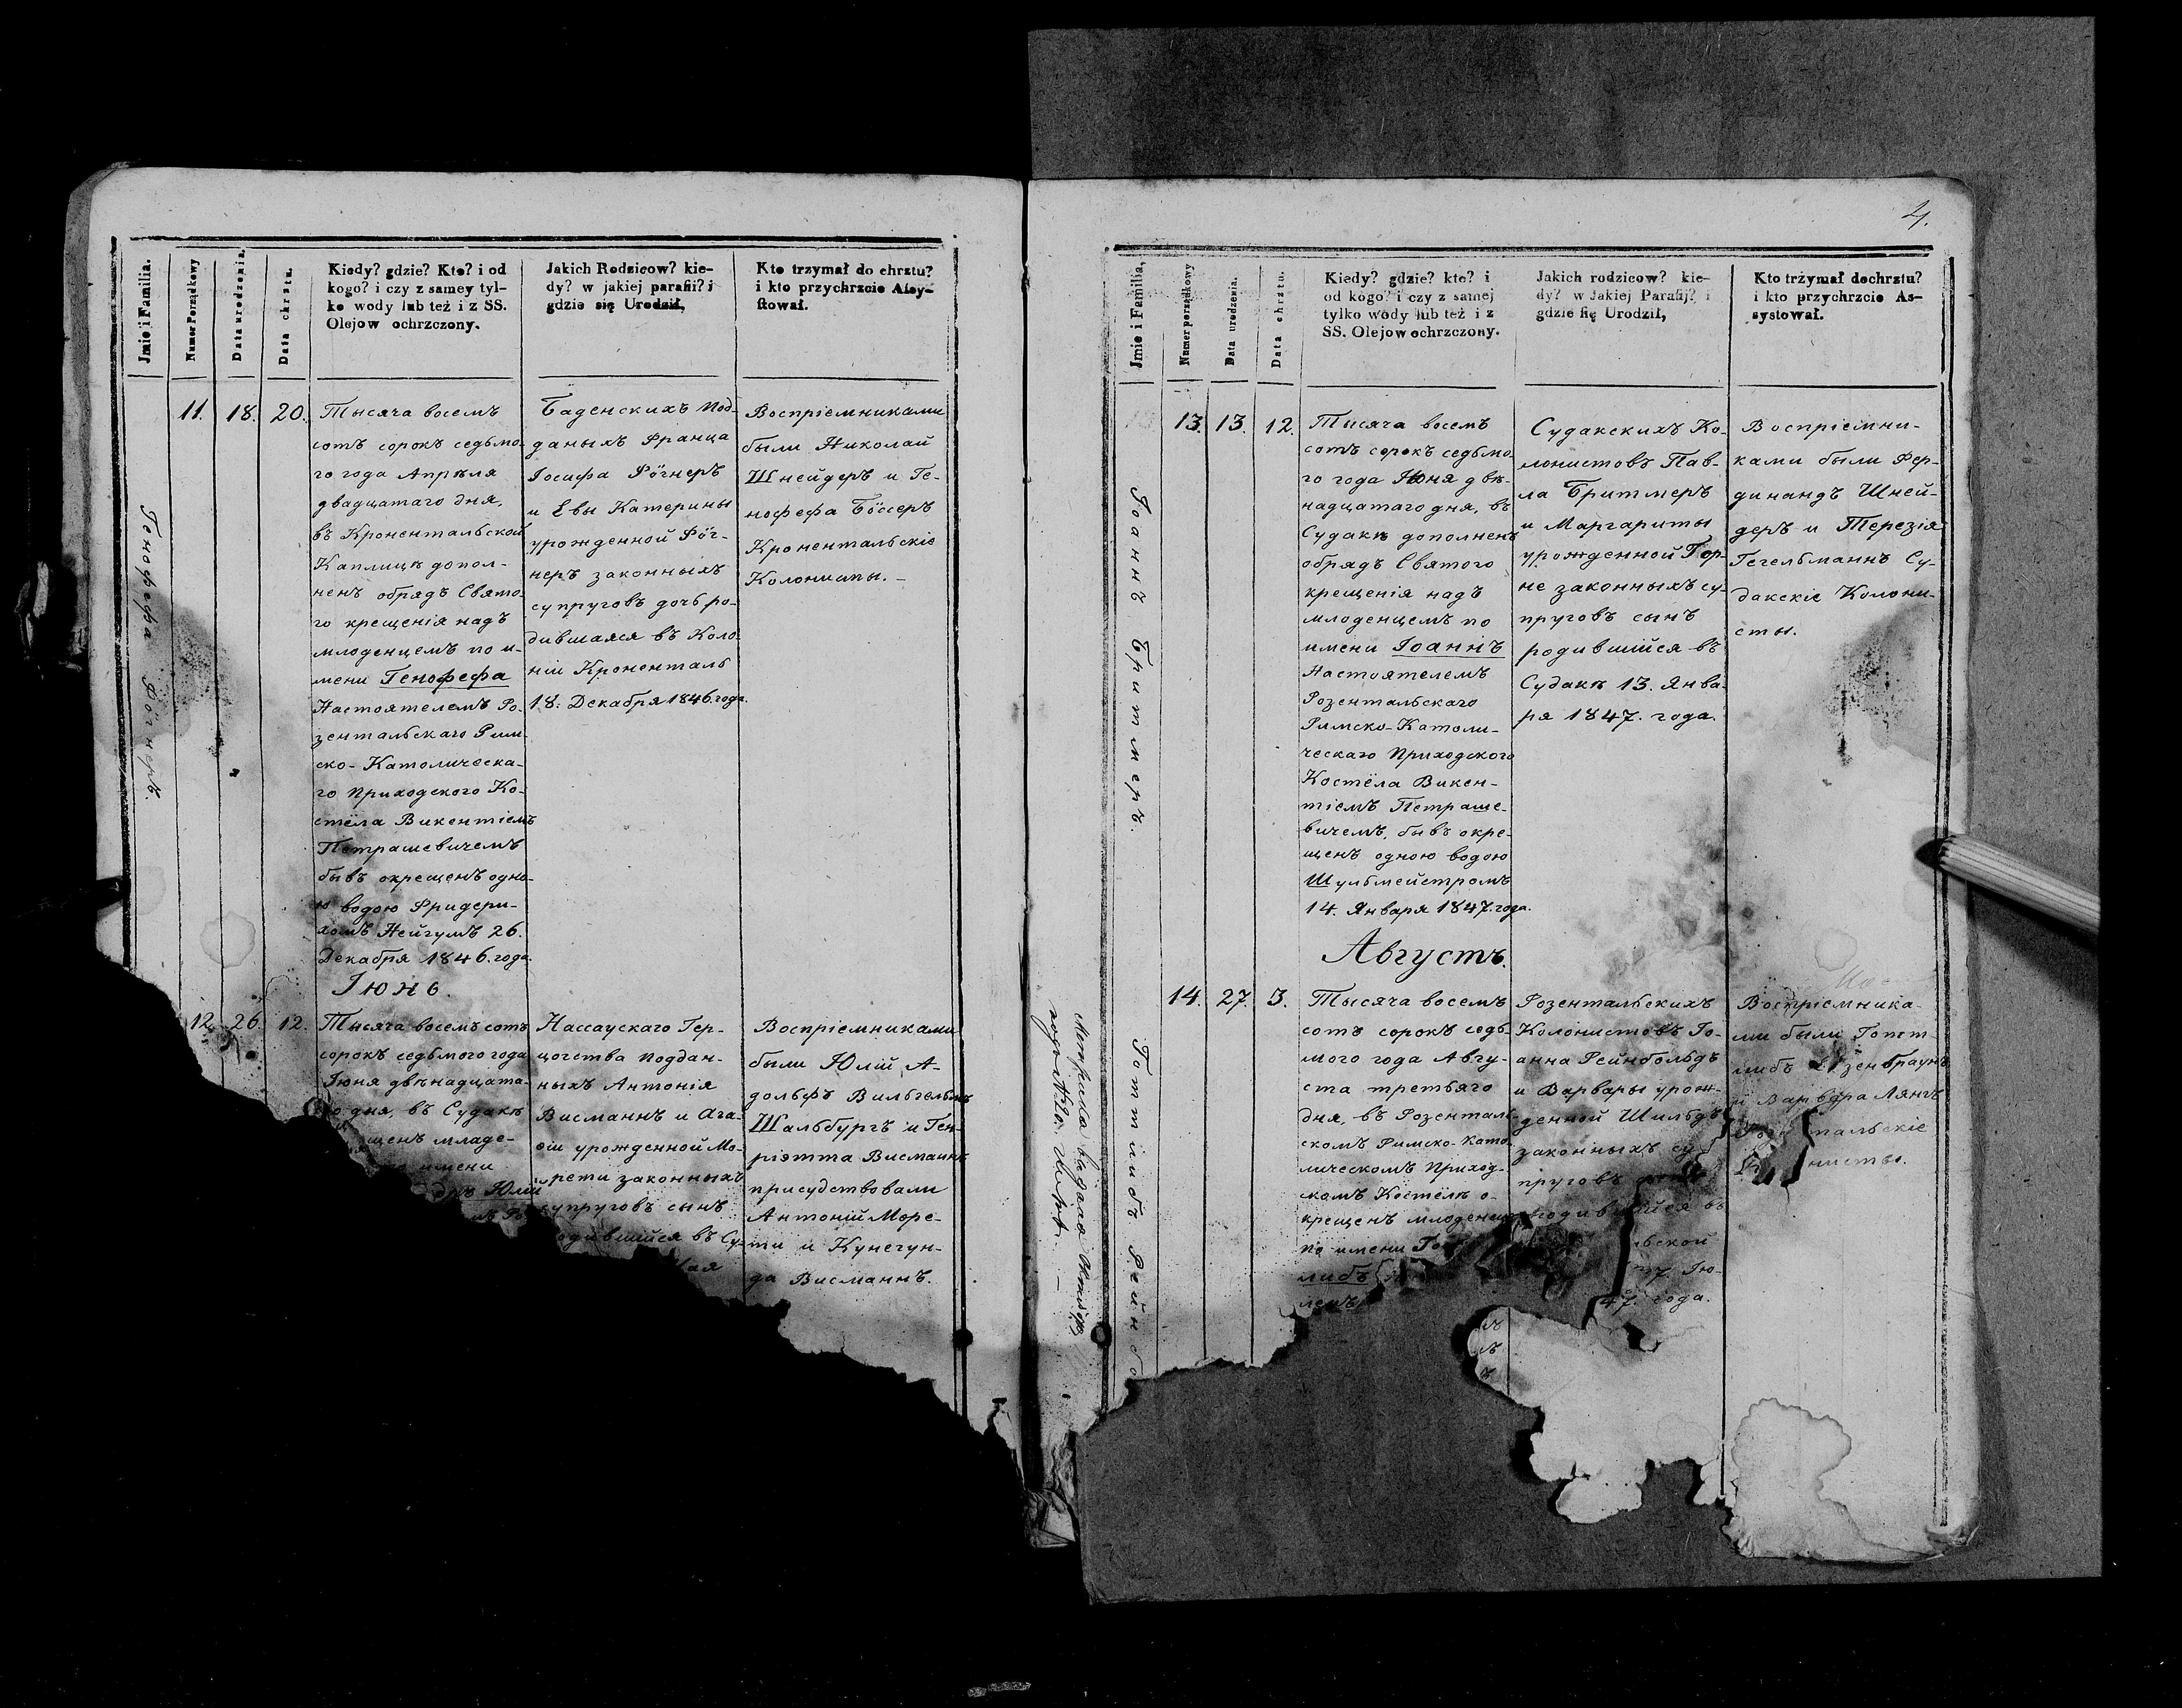 Jmie i Familia.
Numer Porządkowy
Data urodzenia.
Data chrztu.
Kiedy? gdzie? Kto? i od
kogo? i czy z samey tyl-
ko wody lub też i z SS.
Olejow ochrzczony.
Jakich Rodzicow? kie-
dy? w jakiej parafii? i
gdzie się Urodził,
Kto trzymał do chrztu?
i kto przychrzcie Assy-
stował.
Генофефа Фёгнеръ.
11. 18. 20.
Тысяча восемъ
сотъ сорокъ седьмо-
го года Апрѣля
двадцатаго дня,
въ Кроненталъской
Каплицѣ допол-
ненъ обрядъ Свято-
го крещенія надъ
младенцемъ по и-
мени Генофефа
Настоятелемъ Ро-
зентальскаго Рим-
ско-Католическа-
го Приходского Ко-
стёла Викентіемъ
Петрашевичемъ
бывъ окрещенъ одно-
ю водою Фридери-
хомъ Нейгумъ 26.
Декабря 1846. года.
Баденскихъ Под-
даныхъ Франца
Іосифа Фёгнеръ
и Евы Катерины
урожденной Фёг-
неръ законныхъ
супруговъ дочь ро-
дившаяся въ Коло-
ніи Кроненталь
18. Декабря 1846. года.
Воспріемниками
были Николай
Шнейдеръ и Ге-
нофефа Бёссеръ
Кронентальскіе
Колонисты. –
Іюнь.
12. 26. 12.
Тысяча восемъ сотъ
сорокъ седьмого года
Іюня двѣнадцата-
го дня, въ Судакѣ
щенъ младе-
имени
Юлій
Нассаускаго Гер-
цогства поддан-
ныхъ Антонія
Висманнъ и Ага-
ѳіи урожденной Мо-
рети законныхъ
супруговъ сынъ
родившійся въ Су-
Мая
Воспріемниками
были Юлій А-
дольфъ Вильгельмъ
Шальбургъ и Ген-
ріэтта Висманнъ
присудствовали
Антоній Море-
ти и Кунегун-
да Висманнъ.
4.
Jmie i Familia,
Numer porządkowy
Data urodzenia.
Data chrztu.
Kiedy? gdzie? kto? i
od kogo? i czy z samej
tylko wody lub też i z
SS. Olejow ochrzczony.
Jakich rodzicow? kie-
dy? w Jakiej Parafij? i
gdzie się Urodził,
Kto trzymał dochrztu?
i kto przychrzcie As-
systował.
Іоаннъ Бритмеръ.
13. 13. 12.
Тысяча восемъ
сотъ сорокъ седьмо-
го года Іюня двѣ-
надцатаго дня, въ
Судакѣ дополненъ
обрядъ Святого
крещенія надъ
младенцемъ по
имени Іоаннъ
Настоятелемъ
Розентальскаго
Римско-Католи-
ческаго Приходского
Костёла Викен-
тіемъ Петраше-
вичемъ, бывъ окре-
щенъ одною водою
Шульмейстромъ
14. Января 1847. года.
Судакскихъ Ко-
лонистовъ Пав-
ла Бритмеръ
и Маргариты
урожденной Гор-
не законныхъ су-
пруговъ сынъ
родившійся въ
Судакѣ 13. Янва-
ря 1847. года.
Воспріемни-
ками были Фер-
динандъ Шней-
деръ и Терезія
Гегельманнъ Су-
дакскіе Колони-
сты.
Августъ.
Готтлибъ Рейнбо
14. 27. 3.
Тысяча восемъ
сотъ сорокъ седь-
мого года Авгу-
ста третьяго
дня, въ Розенталь-
скомъ Римско-Като-
лическомъ Приход-
скомъ Костёлѣ о-
крещенъ младенецъ
по имени Гот
либъ
лемъ
Розентальскихъ
Колонистовъ Іо-
анна Рейнбольдъ
и Варвары урож-
денной Шильдъ
законныхъ су-
пруговъ
родившійся въ
ьской
27. Ію-
47. года.
Воспріемника-
ми были Готт-
либъ
и Варвара Лянгъ
тальскіе
нисты.
Метрика выдана Октября